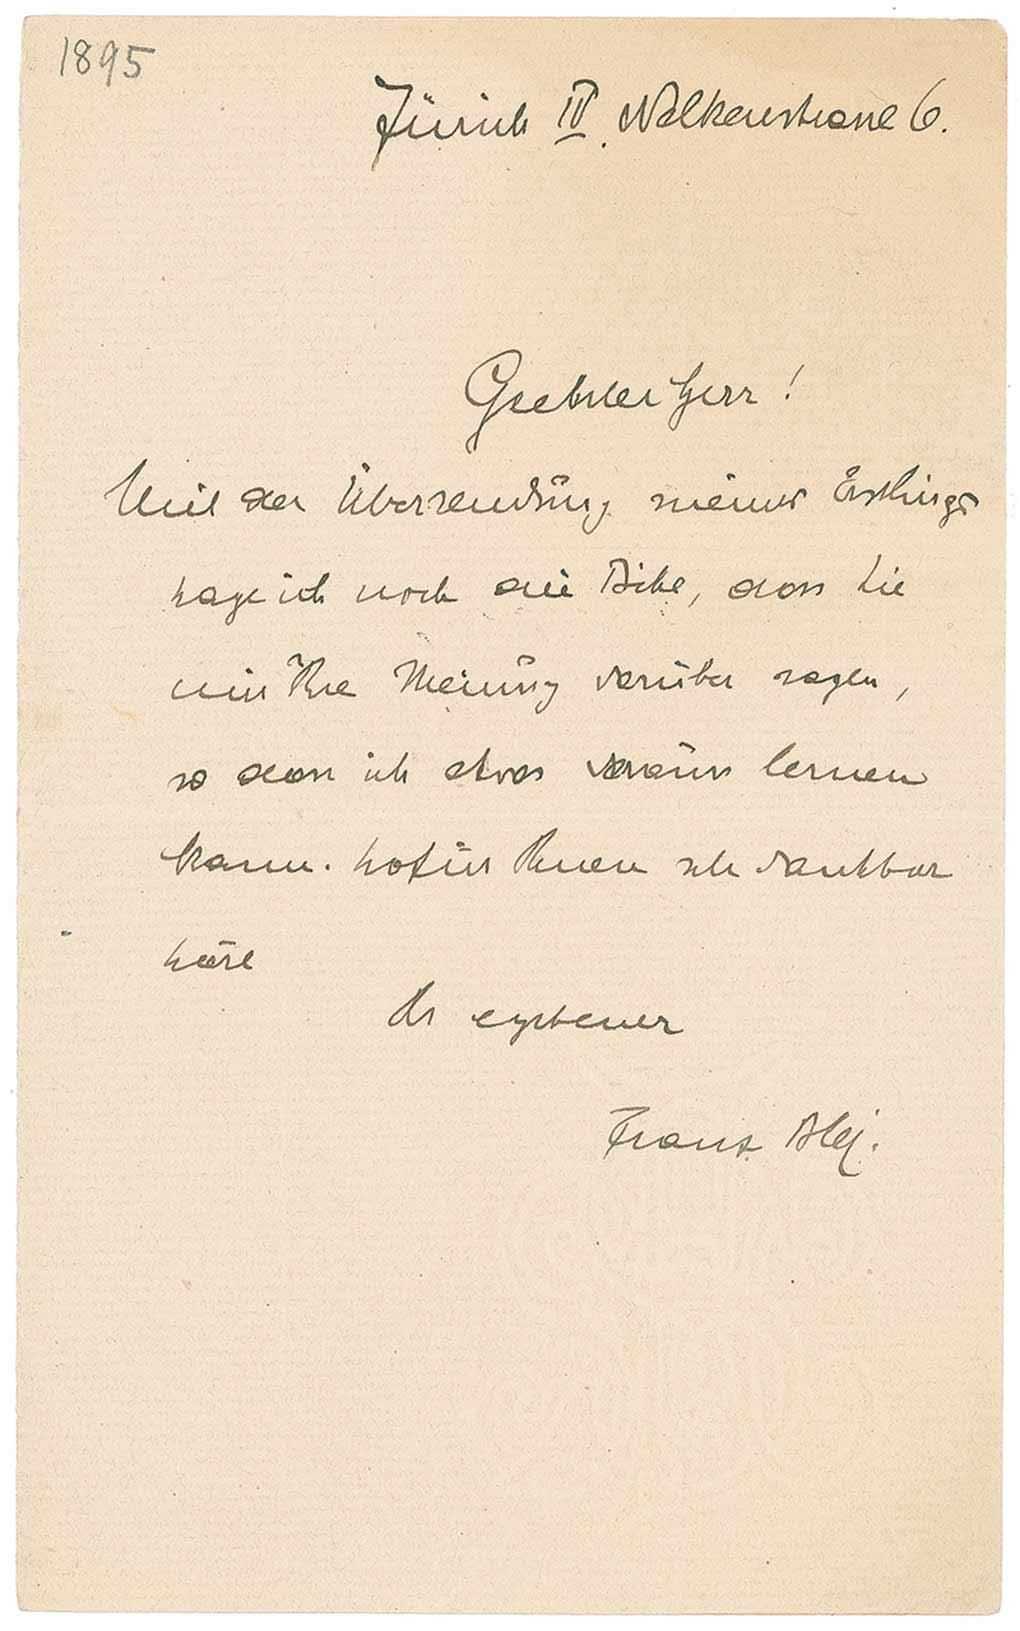 1895
Zürich IV. Nelkenstrasse 6.
Geehrter Herr!
Mit der Übersendung meines Erstlings
wage ich noch die Bitte, dass Sie
mir Ihre Meinung darüber sagen,
so dass ich etwas daraus lernen
kann. Wofür Ihnen sehr dankbar
wäre
Ihr ergebener
Franz Blei.